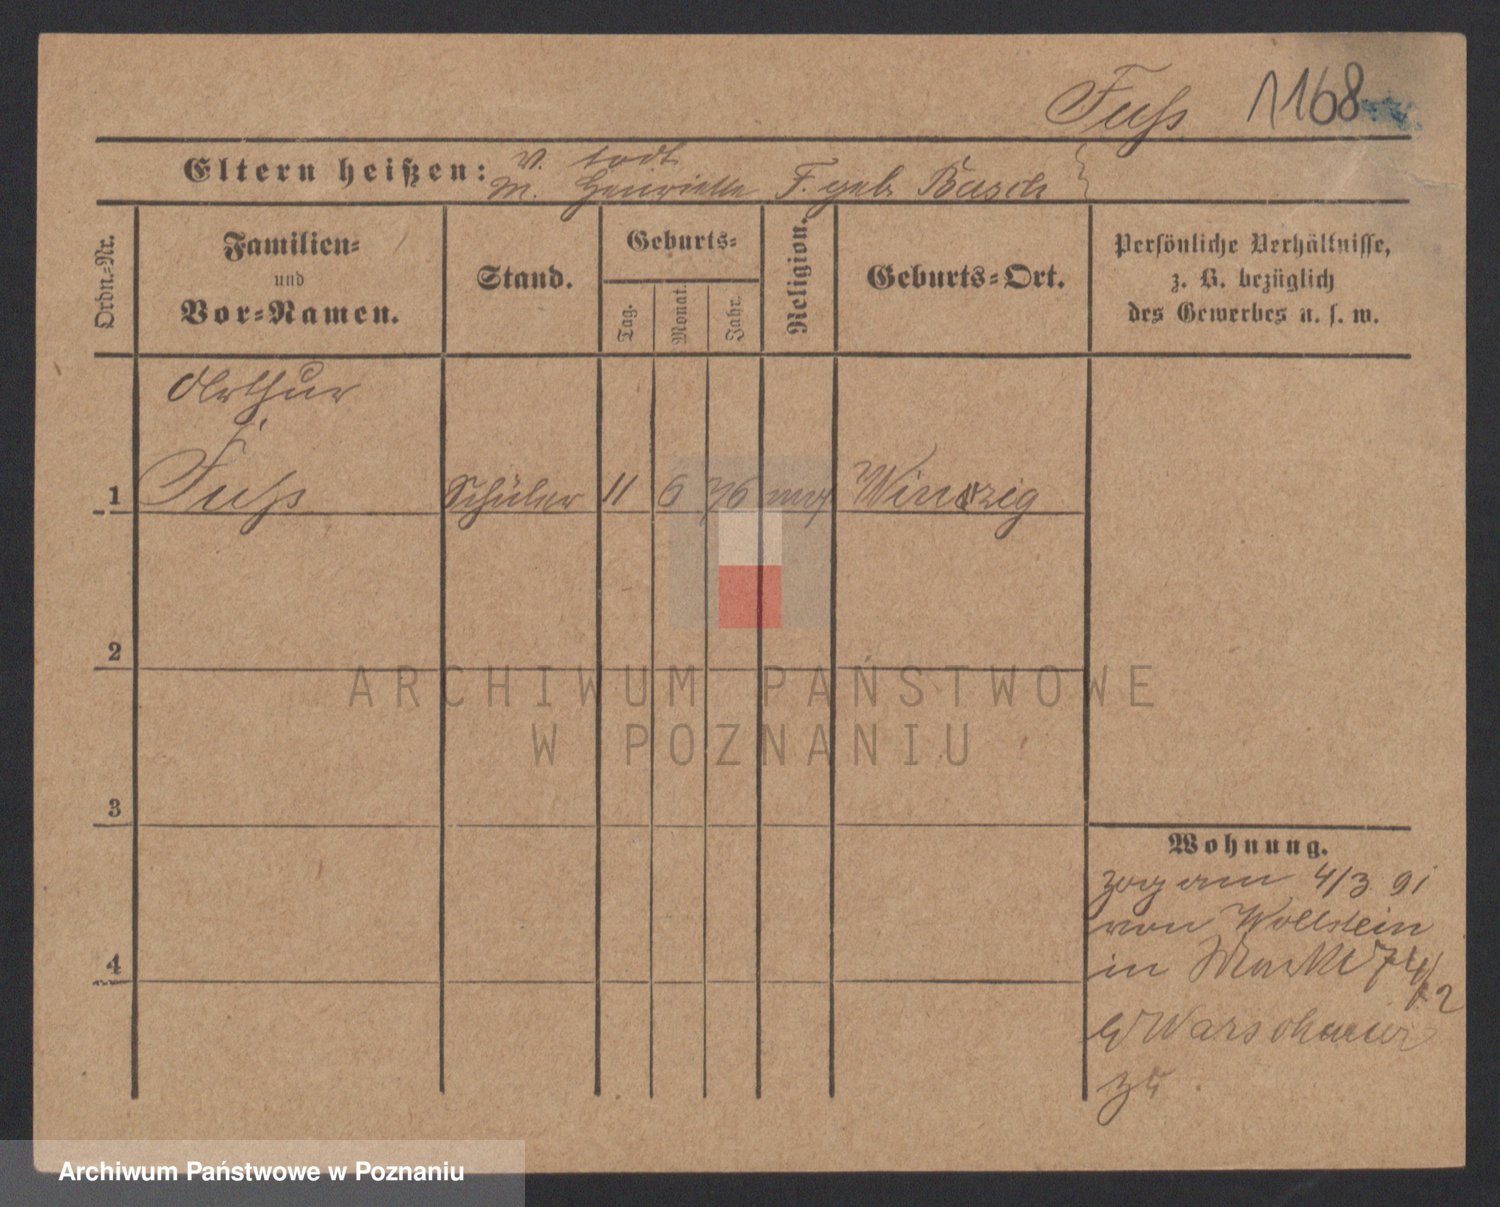 Fuß 1168
Eltern heißen: V. todt
M. Henriette F. geb. Busch
Ordn.-Nr.
Familien-
und
Vor-Namen.
Stand.
Geburts-
Tag.
Monat.
Jahr.
Religion.
Geburts-Ort.
Persönliche Verhältnisse,
z. B. bezüglich
des Gewerbes u. s. w.
Arthur
1 Fuß Schüler 11 6 76 mos Winzig
2
3
4
Wohnung.
zog am 4/3 91
von Wollstein
in Markt 74/
2
Warschauer
zu
ARCHIWUM PAŃSTWOWE
W POZNANIU
Archiwum Państwowe w Poznaniu